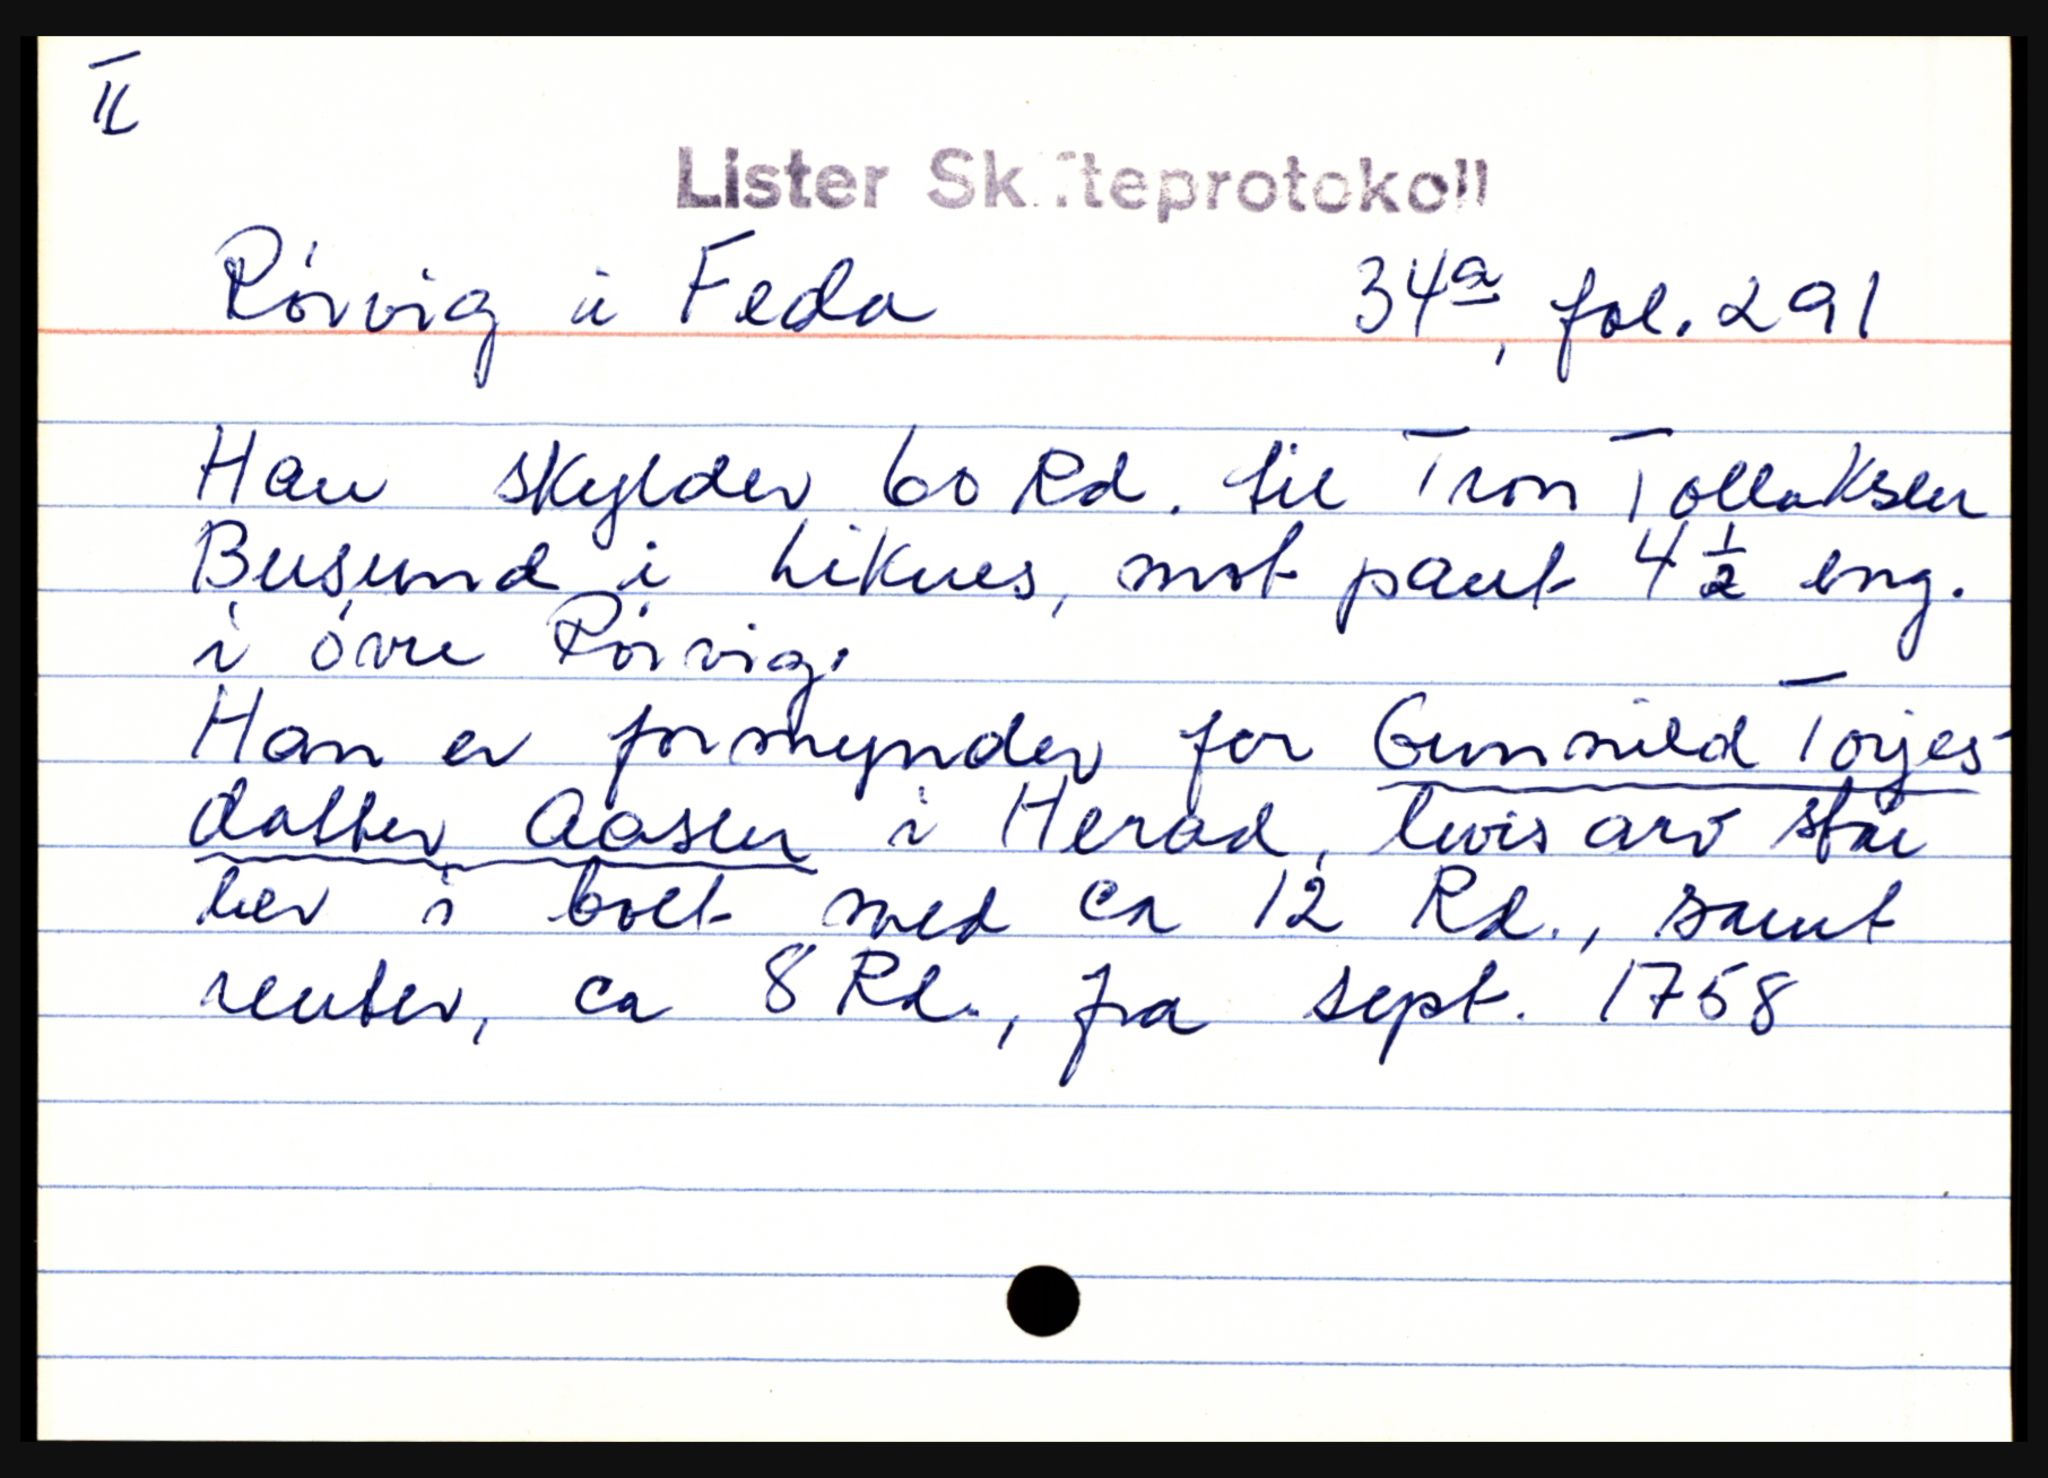 II
Lister Skifteprotokoll
Rörvig i Feda 34a, fol. 291
Han skylder 60 Rd. til Tron Tollaksen
Busund i Liknes, mot pant 4 1/2 eng.
i övre Rörvig.
Han er formynder for Gunnild Torjes-
datter Aasen i Herad, hvis arv står
her i boet med ca 12 Rd., samt
renter, ca 8 Rd., fra sept. 1758